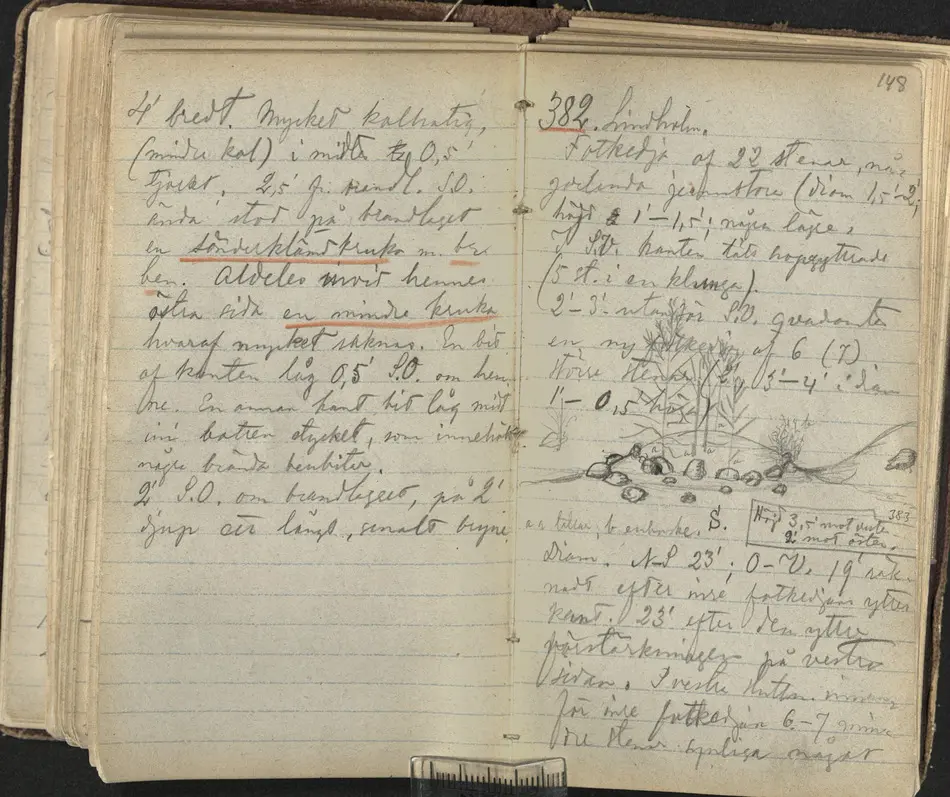 4' bredt. Mycket kolhaltig,
(mindre kol) i midten 0,5'
tjockt. 2,5' fr. brandl. S.O.
ända stod på brandlagret
en sönderklämd kruka m. br.
ben. Aldeles invid hennes
östra sida en mindre kruka
hvaraf mycket saknas. En bit
af kanten låg 0,5' S.O. om hen
ne. En annan kant bit låg midt
i botten stycket, som innehöll
några brända benbitar.
2' S.O. om brandlagret, på 2'
djup ett långt, smalt bryne
148
382. Lindholm.
Fotkedja af 22 stenar, nå-
gorlunda jemnstora (diam 1,5'-2';
höjd 1'-1,5'; några lägre.
I S.V. kanten täts hopgyttrade
(5 st. i en klunga).
2'-3' utanför S.V. qvadranten
en ny fotkedja af 6 (7)
större stenar 3'-4' i diam
1'- 0,5 höga)
a a tallar, b. enbuske. S.
Höjd 3,5' mot
2' mot öster.
383
Diam. N-S 23'; O-V. 19' räk-
nadt efter inre fotkedjans yttre
kant. 23' efter den yttre
förstärkningen på vestra
sidan. I vestra
för inre fotkedjan 6-7 min
dre stenar synliga något